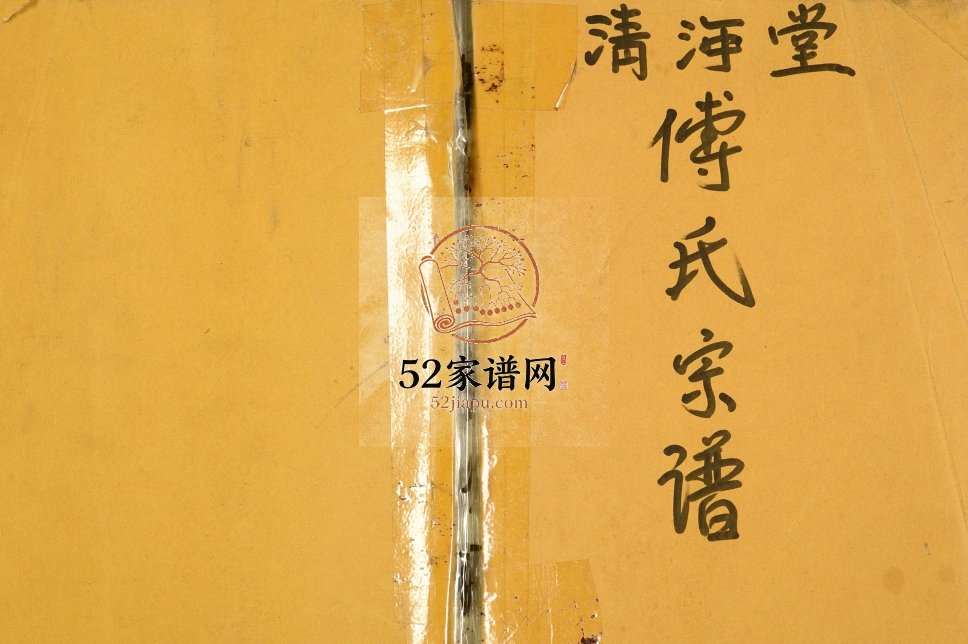 清河堂
傅氏宗谱
52家谱网
52jiapu.com